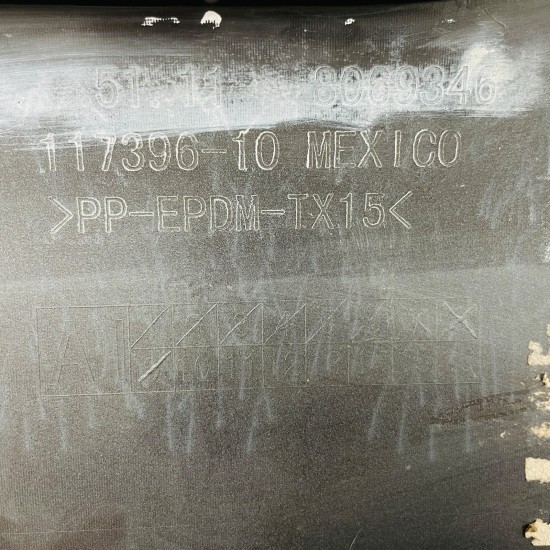 51.11 8069346
117396-10 MEXICO
>PP-EPDM-TX15<
A1